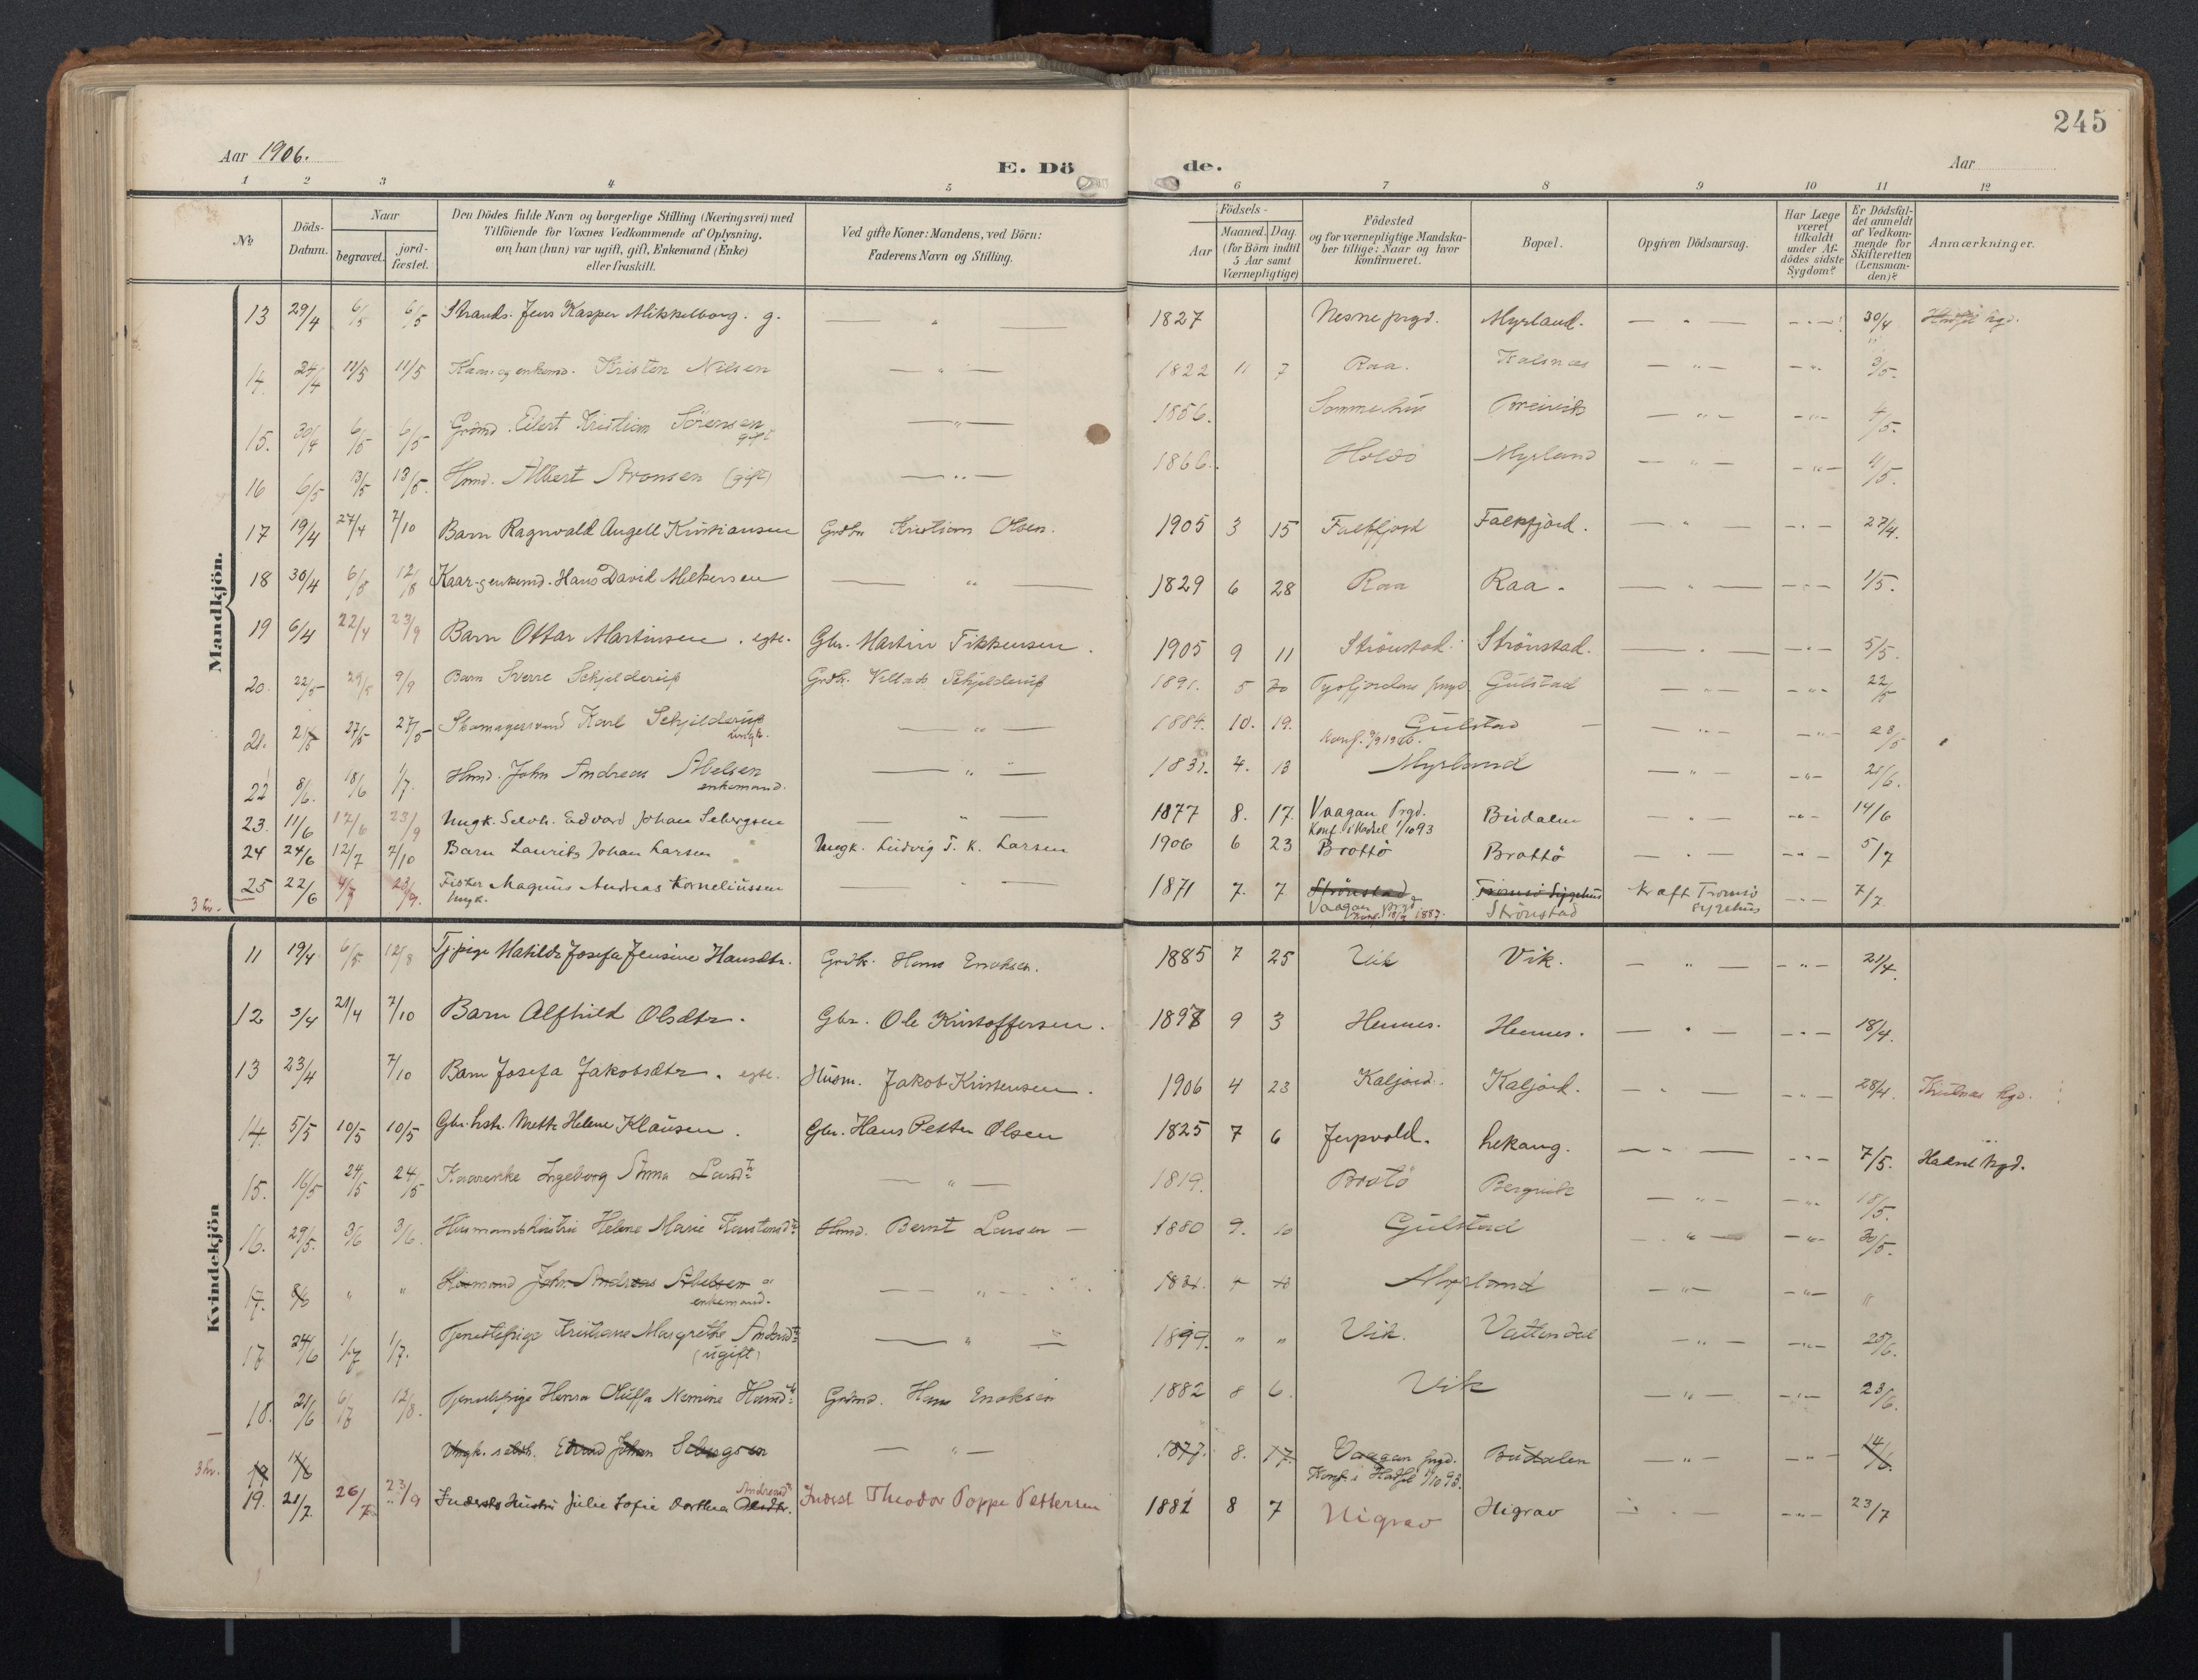 245
Aar 1906.
E. Döde.
Aar
1 2 3 4 5 6 7 8 9 10 11 12
№
Döds-Datum.
Naar
begravet.
jord-fæstet.
Den Dödes fulde Navn og borgerlige Stilling (Næringsvei) med
Tilföiende for Voxnes Vedkommende af Oplysning,
om han (hun) var ugift, gift, Enkemand (Enke)
eller fraskilt.
Ved gifte Koner: Mandens, ved Börn:
Faderens Navn og Stilling.
Födsels-
Aar
Maaned. Dag.
(for Börn indtil
5 Aar samt
Værnepligtige)
Födested
og for værnepligtige Mandska-
ber tillige: Naar og hvor
konfirmeret.
Bopæl.
Opgiven Dödsaarsag.
Har Læge
været
tilkaldt
under Af-
dödes sidste
Sygdom?
Er Dödsfal-
det anmeldt
af Vedkom-
mende for
Skifteretten
(Lensman-
den)?
Anmærkninger.
Mandkjön.
13 29/4 6/5 6/5 Strands. Jens Kasper Mikkelborg. g. — " — 1827 Nesne prgd. Myrland. — " — — " — 30/4
14. 24/4 11/5 11/5 Kaar og enkemd. Kristen Nilsen — " — 1822 11 7 Raa. Kalsnæs — " — — " — 3/5.
15. 30/4 6/5 6/5 Grdmd. Eilert Kristian Sörensen gift — " — 1856. Breivik — " — — " — 4/5.
16 6/5 13/5 13/5. Hmd. Albert Aronsen (gift) — " — 1866. Holdö Myrland — " — — " — 11/5.
17 19/4 27/4 7/10 Barn Ragnvald Angell Kristiansen Grdbr Kristian Olsen. 1905 3 15 Falkfjord Falkfjord. — " — — " — 27/4.
18 30/4 6/5 12/8 Kaar-g enkemd. Hans David Melkersen — " — 1829 6 28 Raa Raa. — " — — " — 1/5.
19 6/4 22/4 23/9 Barn Ottar Martinsen. egte. Gbr. Martin Fikkensen. 1905 9 11 Strönstad. Strönstad. — " — — " — 5/5.
20. 22/5 29/5 9/9 Barn Sverre Schjelderup Grdbr. Villads Schjelderup 1891. 5 20 Tysfjordens prgd Gulstad — " — — " — 22/5
21. 21/5 27/5 27/5 Skomagersvend Karl Schjelderup ungk. — " — 1884. 10. 19. Gulstad — " — — " — 23/5
22 8/6. 18/6 1/7. Hmd. John Andreas Abelsen enkemand. — " — 1831. 4. 13 Myrland — " — — " — 21/6.
23. 11/6 17/6 23/9 Ungk. Selvh. Edvard Johan Sebergsen — " — 1877 8. 17. Vaagan Prgd. Budalen — " — — " — 14/6
Konf. i Hadsel 1/10 93
24 24/6 12/7 7/10 Barn Laurits Johan Larsen Ungk. Ludvig T. K. Larsen 1906 6 23 Brottö Brottö — " — — " — 5/7
25 22/6 4/7 23/9. Fisker Magnus Andreas Korneliussen — " — 1871 7. 7 Strönstad Tromsö Sygehus Kræft Tromsö — " — 7/7.
Ungk. Vaagan prgd Strönstad sygehus
Kvindekjön
11 19/4 6/5 12/8 Tj. pige Matilde Josefa Jensine Hansdtr. Grdbr. Hans Enoksen. 1885 7 25 Vik Vik. — " — — " — 21/4.
12 3/4 21/4 7/10 Barn Alfhild Olsdtr. Gbr. Ole Kristoffersen. 1898 9 3 Hennes. Hennes. — " — — " — 18/4.
13 23/4 7/10 Barn Josefa Jakobsdtr. egte. Husm. Jakob Kristensen. 1906 4 23 Kaljord. Kaljord. — " — — " — 28/4.
14. 5/5 10/5 10/5 Gbr. hstr. Mette Helene Klausen. Gbr. Hans Petter Olsen 1825 7 6 Jerpvold. Lekang. — " — — " — 7/5. Hadsel kgd.
15. 16/5 24/5 24/5 Kaarenke Ingeborg Anna Larsdtr — " — 1819. Brotö Bergvik — " — — " — 18/5.
16. 29/5. 3/6 3/6. Husmandshustru Helene Marie Karstensdtr Hmd. Bernt Larsen — 1880 9. 10 Gulstad — " — — " — 30/5.
17. 8/6 " " Husmand John Andreas Abelsen " enkemand. — " — 1831. 4 13 Myrland — " — — " — "
17 24/6 1/7 1/7. Tjenestepige Kristiane Margrethe Andersdtr (ugift) — " — 1899. " " Vik. Vattendal — " — — " — 25/6.
18. 21/6 6/7 12/8. Tjenestepige Hansdtr Grdmd. Hans Enoksen 1882 8 6. Vik — " — — " — 23/6.
19 11/6 Ungk. selvh. Edvard Johan Sebergsen — " — 1877. 8. 17. Vaagan prgd. Budalen — " — — " — 14/6.
Konf. i Hadsel 1/10 93.
19. 21/7. 26/7 23/9 Inderstshustru Julie Sofie Dorthea Olsdtr. Andreasdtr Inderst Theodor Poppe Pettersen 1881 8 7 Higrav Higrav — " — — " — 23/7